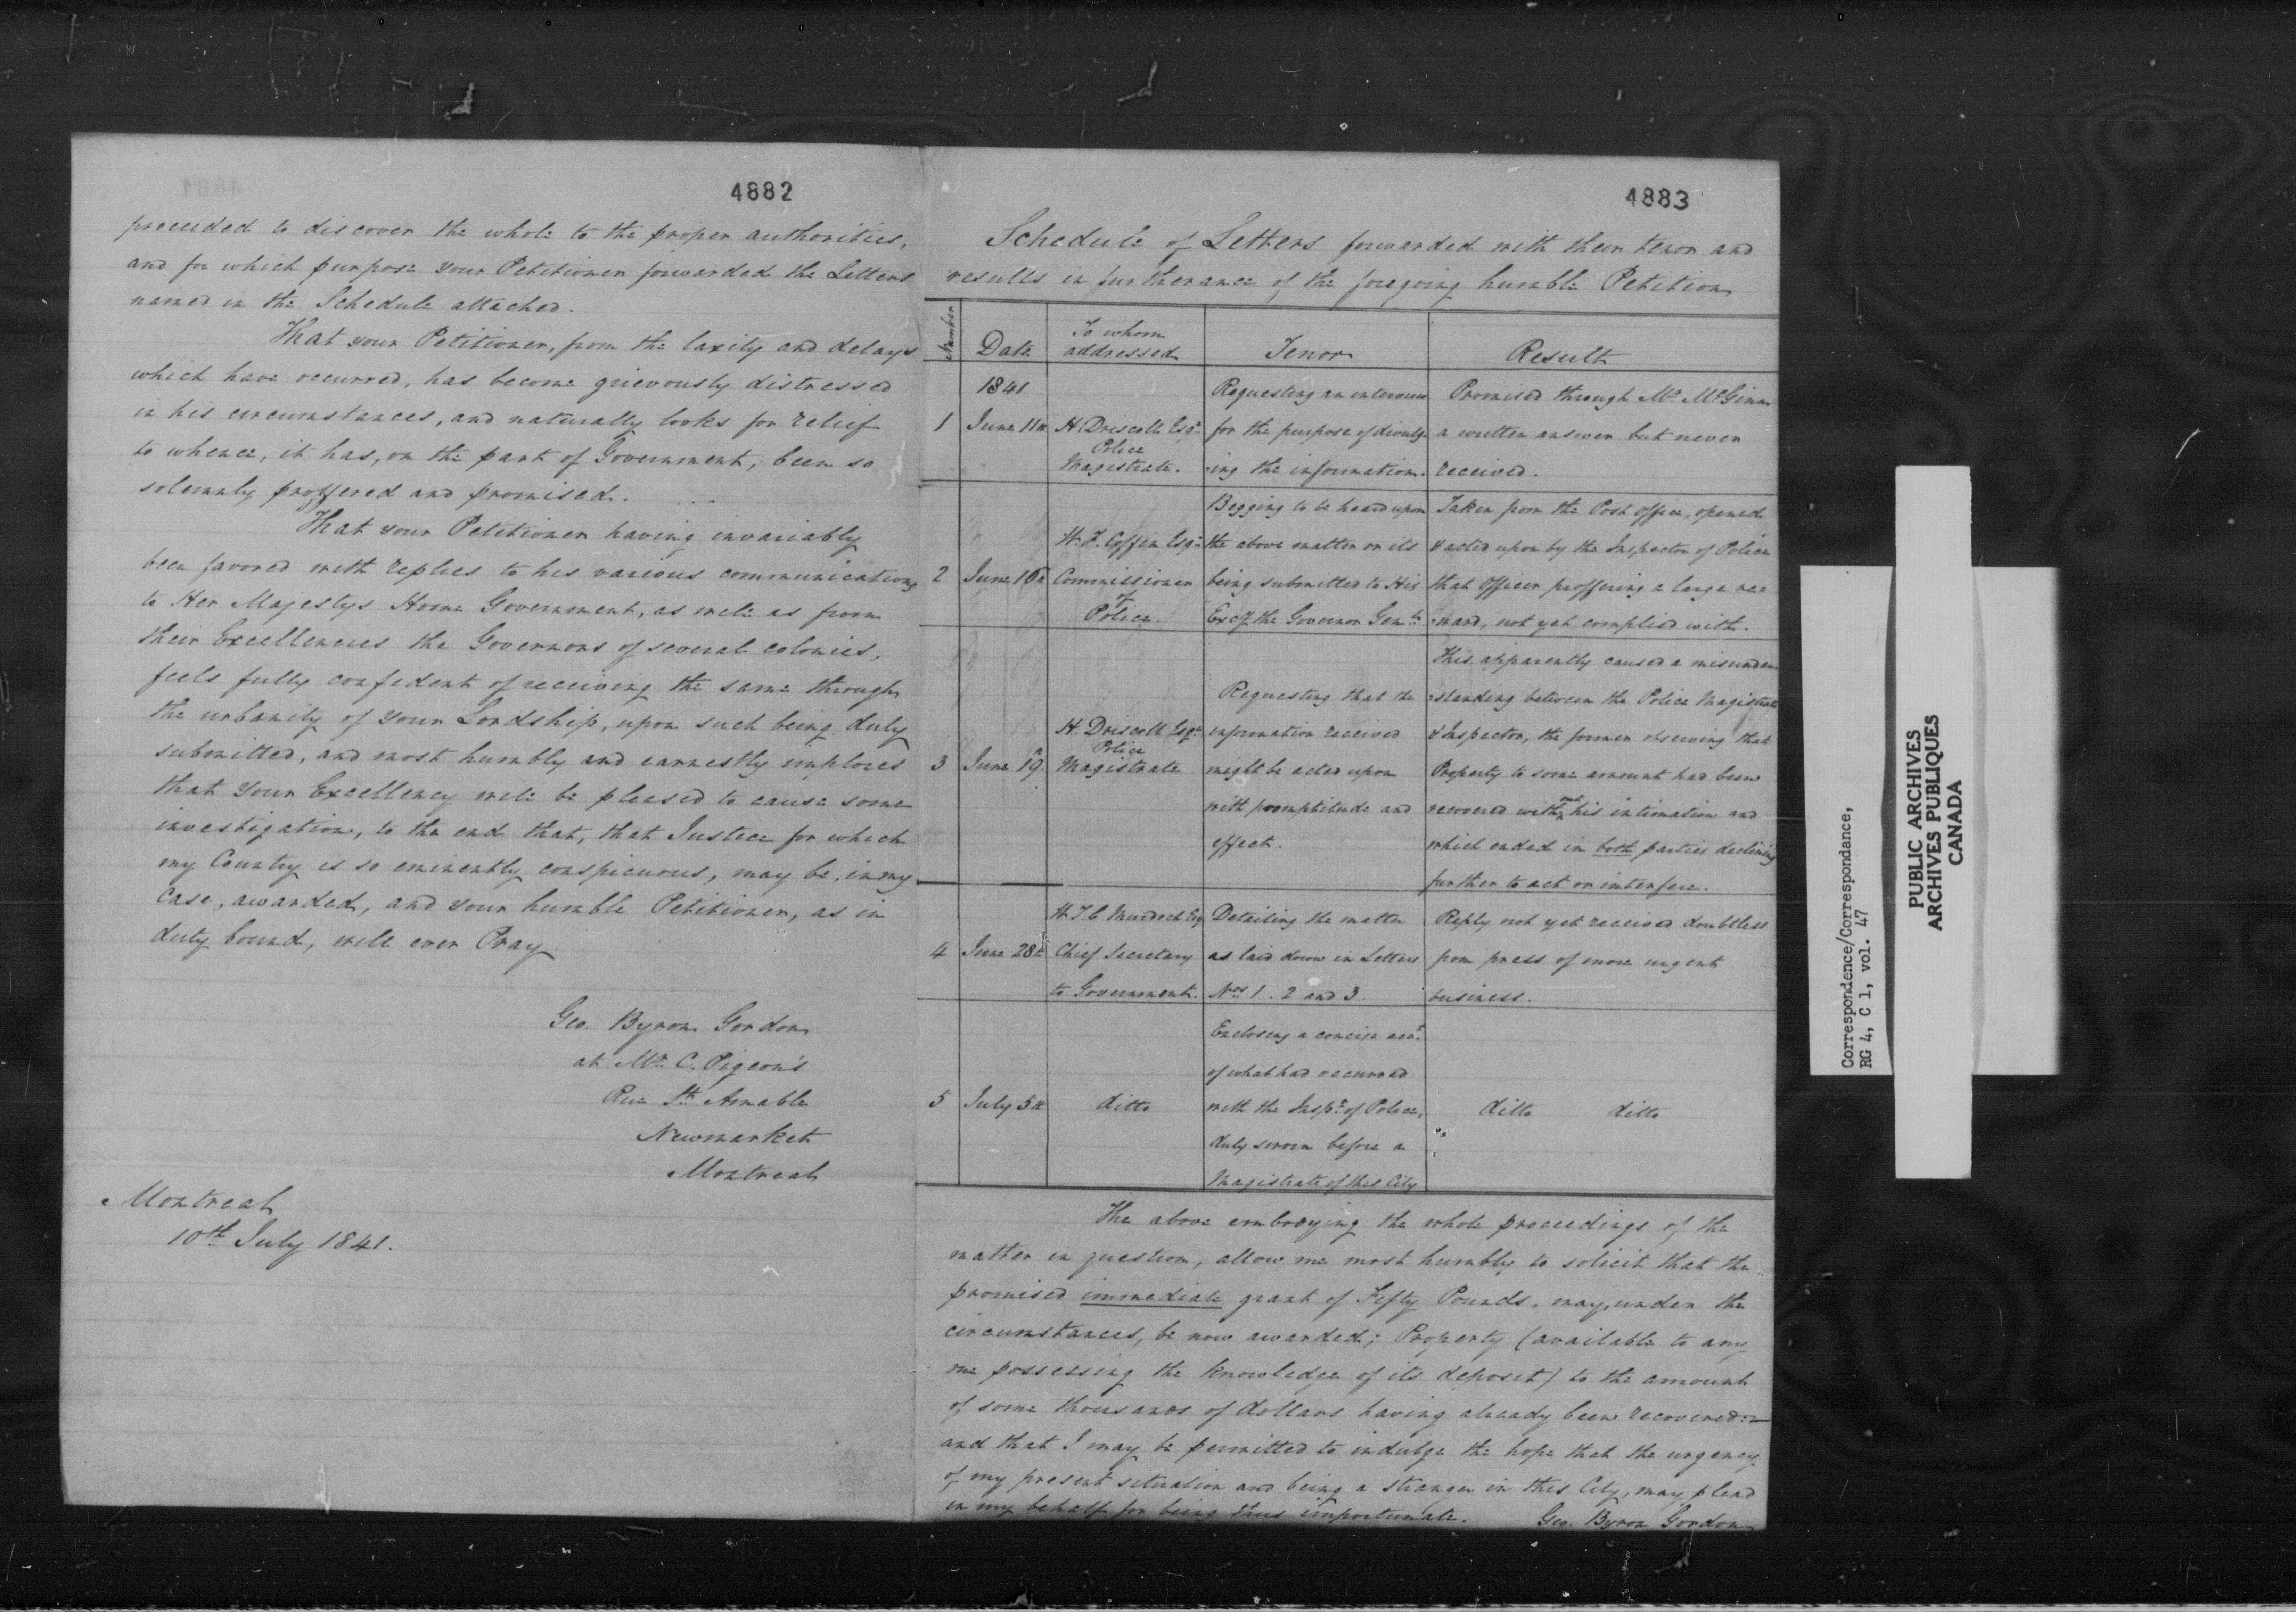 4882
preceeded to discover the whole to the proper authorities,
and for which purpose your Petitioner forwarded the Letters
named in the Schedule attached.
That your Petitioner, from the laxity and delays
which have occurred, has become grievously distressed
in his circumstances, and naturally looks for relief
to whence, it has, on the part of Government, been so
solemnly proffered and promised.
That your Petitioner having invariably
been favored with replies to his various communications
to Her Majestys Home Government, as well as from
their Excellencies the Governors of several colonies,
feels fully confident of receiving the same through
the urbanity of your Lordship, upon such being duly
submitted, and most humbly and earnestly implores
that your Excellency will be pleased to cause some
investigation, to the end that, that Justice for which
my Country is so eminently conspicuous, may be, in my
case, awarded, and your humble Petitioner, as in
duty bound, will ever Pray
Geo. Byron Gordon
at Mr. C. Pigeon's
Rue St. Amable
Newmarket
Montreal
Montreal
10th July 1841.
4883
Schedule of Letters forwarded with their tenor and
results in furtherance of the foregoing humble Petition
Number
Date
To whom
addressed
Tenor
Result
1841
1
June 11th
H. Driscoll Esqr.
Police
Magistrate.
Requesting an interview
for the purpose of divulg-
-ing the information.
Promised through Mr. McGinn
a written answer but never
received.
2
June 16th
W. F. Coffin Esqr.
Commissioner
of
Police.
Begging to be heard upon
the above matter on its
being submitted to His
Excy. the Governor Genl.
Taken from the Post office, opened
& acted upon by the Inspector of Police
that Officer proffering a large re-
-ward, not yet complied with.
3
June 19th
H. Driscoll Esqr.
Police
Magistrate
Requesting that the
information received
might be acted upon
with promptitude and
effect.
This apparently caused a misunder-
-standing between the Police Magistrate
& Inspector, the former observing that
Property to some amount had been
recovered without his intimation and
which ended in both parties declining
further to act or interfere.
4
June 28th
W. T. C. Murdoch Esq
Chief Secretary
to Government.
Detailing the matter
as laid down in Letters
Nos. 1. 2 and 3.
Reply not yet received doubtless
from press of more urgent
business.
5
July 5th
ditto
Enclosing a concise acct.
of what had occurred
with the Inspr. of Police,
duly sworn before a
Magistrate of this City
ditto ditto
The above embodying the whole proceedings of the
matter in question, allow me most humbly to solicit that the
promised immediate grant of Fifty Pounds, may, under the
circumstances, be now awarded; Property (available to any
one possessing the knowledge of its deposit) to the amount
of some thousands of dollars having already been recovered:—
and that I may be permitted to indulge the hope that the urgency
of my present situation and being a stranger in this City, may plead
in my behalf for being thus importunate. Geo. Byron Gordon
Correspondence/Correspondance,
RG 4, C 1, vol. 47
PUBLIC ARCHIVES
ARCHIVES PUBLIQUES
CANADA